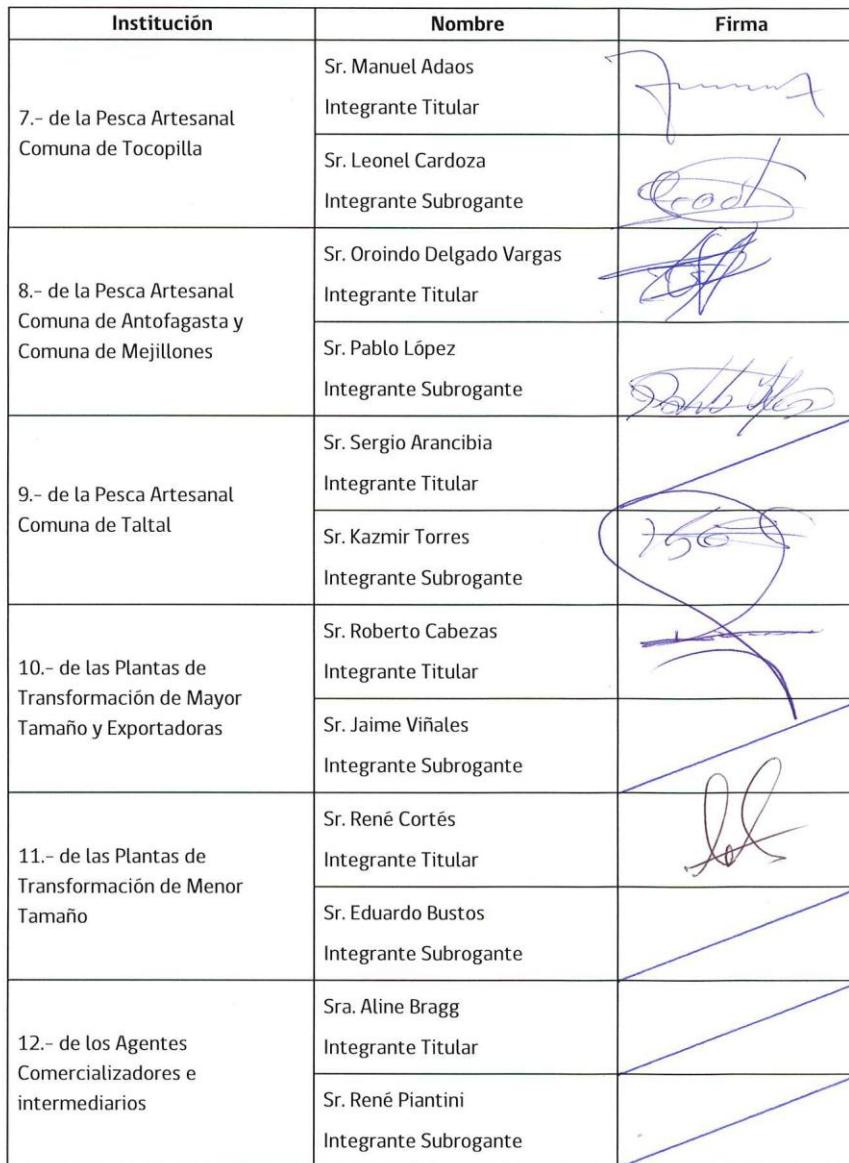 Institución Nombre Firma
7.- de la Pesca Artesanal
Comuna de Tocopilla
Sr. Manuel Adaos
Integrante Titular
Sr. Leonel Cardoza
Integrante Subrogante
8.- de la Pesca Artesanal
Comuna de Antofagasta y
Comuna de Mejillones
Sr. Oroindo Delgado Vargas
Integrante Titular
Sr. Pablo López
Integrante Subrogante
9.- de la Pesca Artesanal
Comuna de Taltal
Sr. Sergio Arancibia
Integrante Titular
Sr. Kazmir Torres
Integrante Subrogante
10.- de las Plantas de
Transformación de Mayor
Tamaño y Exportadoras
Sr. Roberto Cabezas
Integrante Titular
Sr. Jaime Viñales
Integrante Subrogante
11.- de las Plantas de
Transformación de Menor
Tamaño
Sr. René Cortés
Integrante Titular
Sr. Eduardo Bustos
Integrante Subrogante
12.- de los Agentes
Comercializadores e
intermediarios
Sra. Aline Bragg
Integrante Titular
Sr. René Piantini
Integrante Subrogante